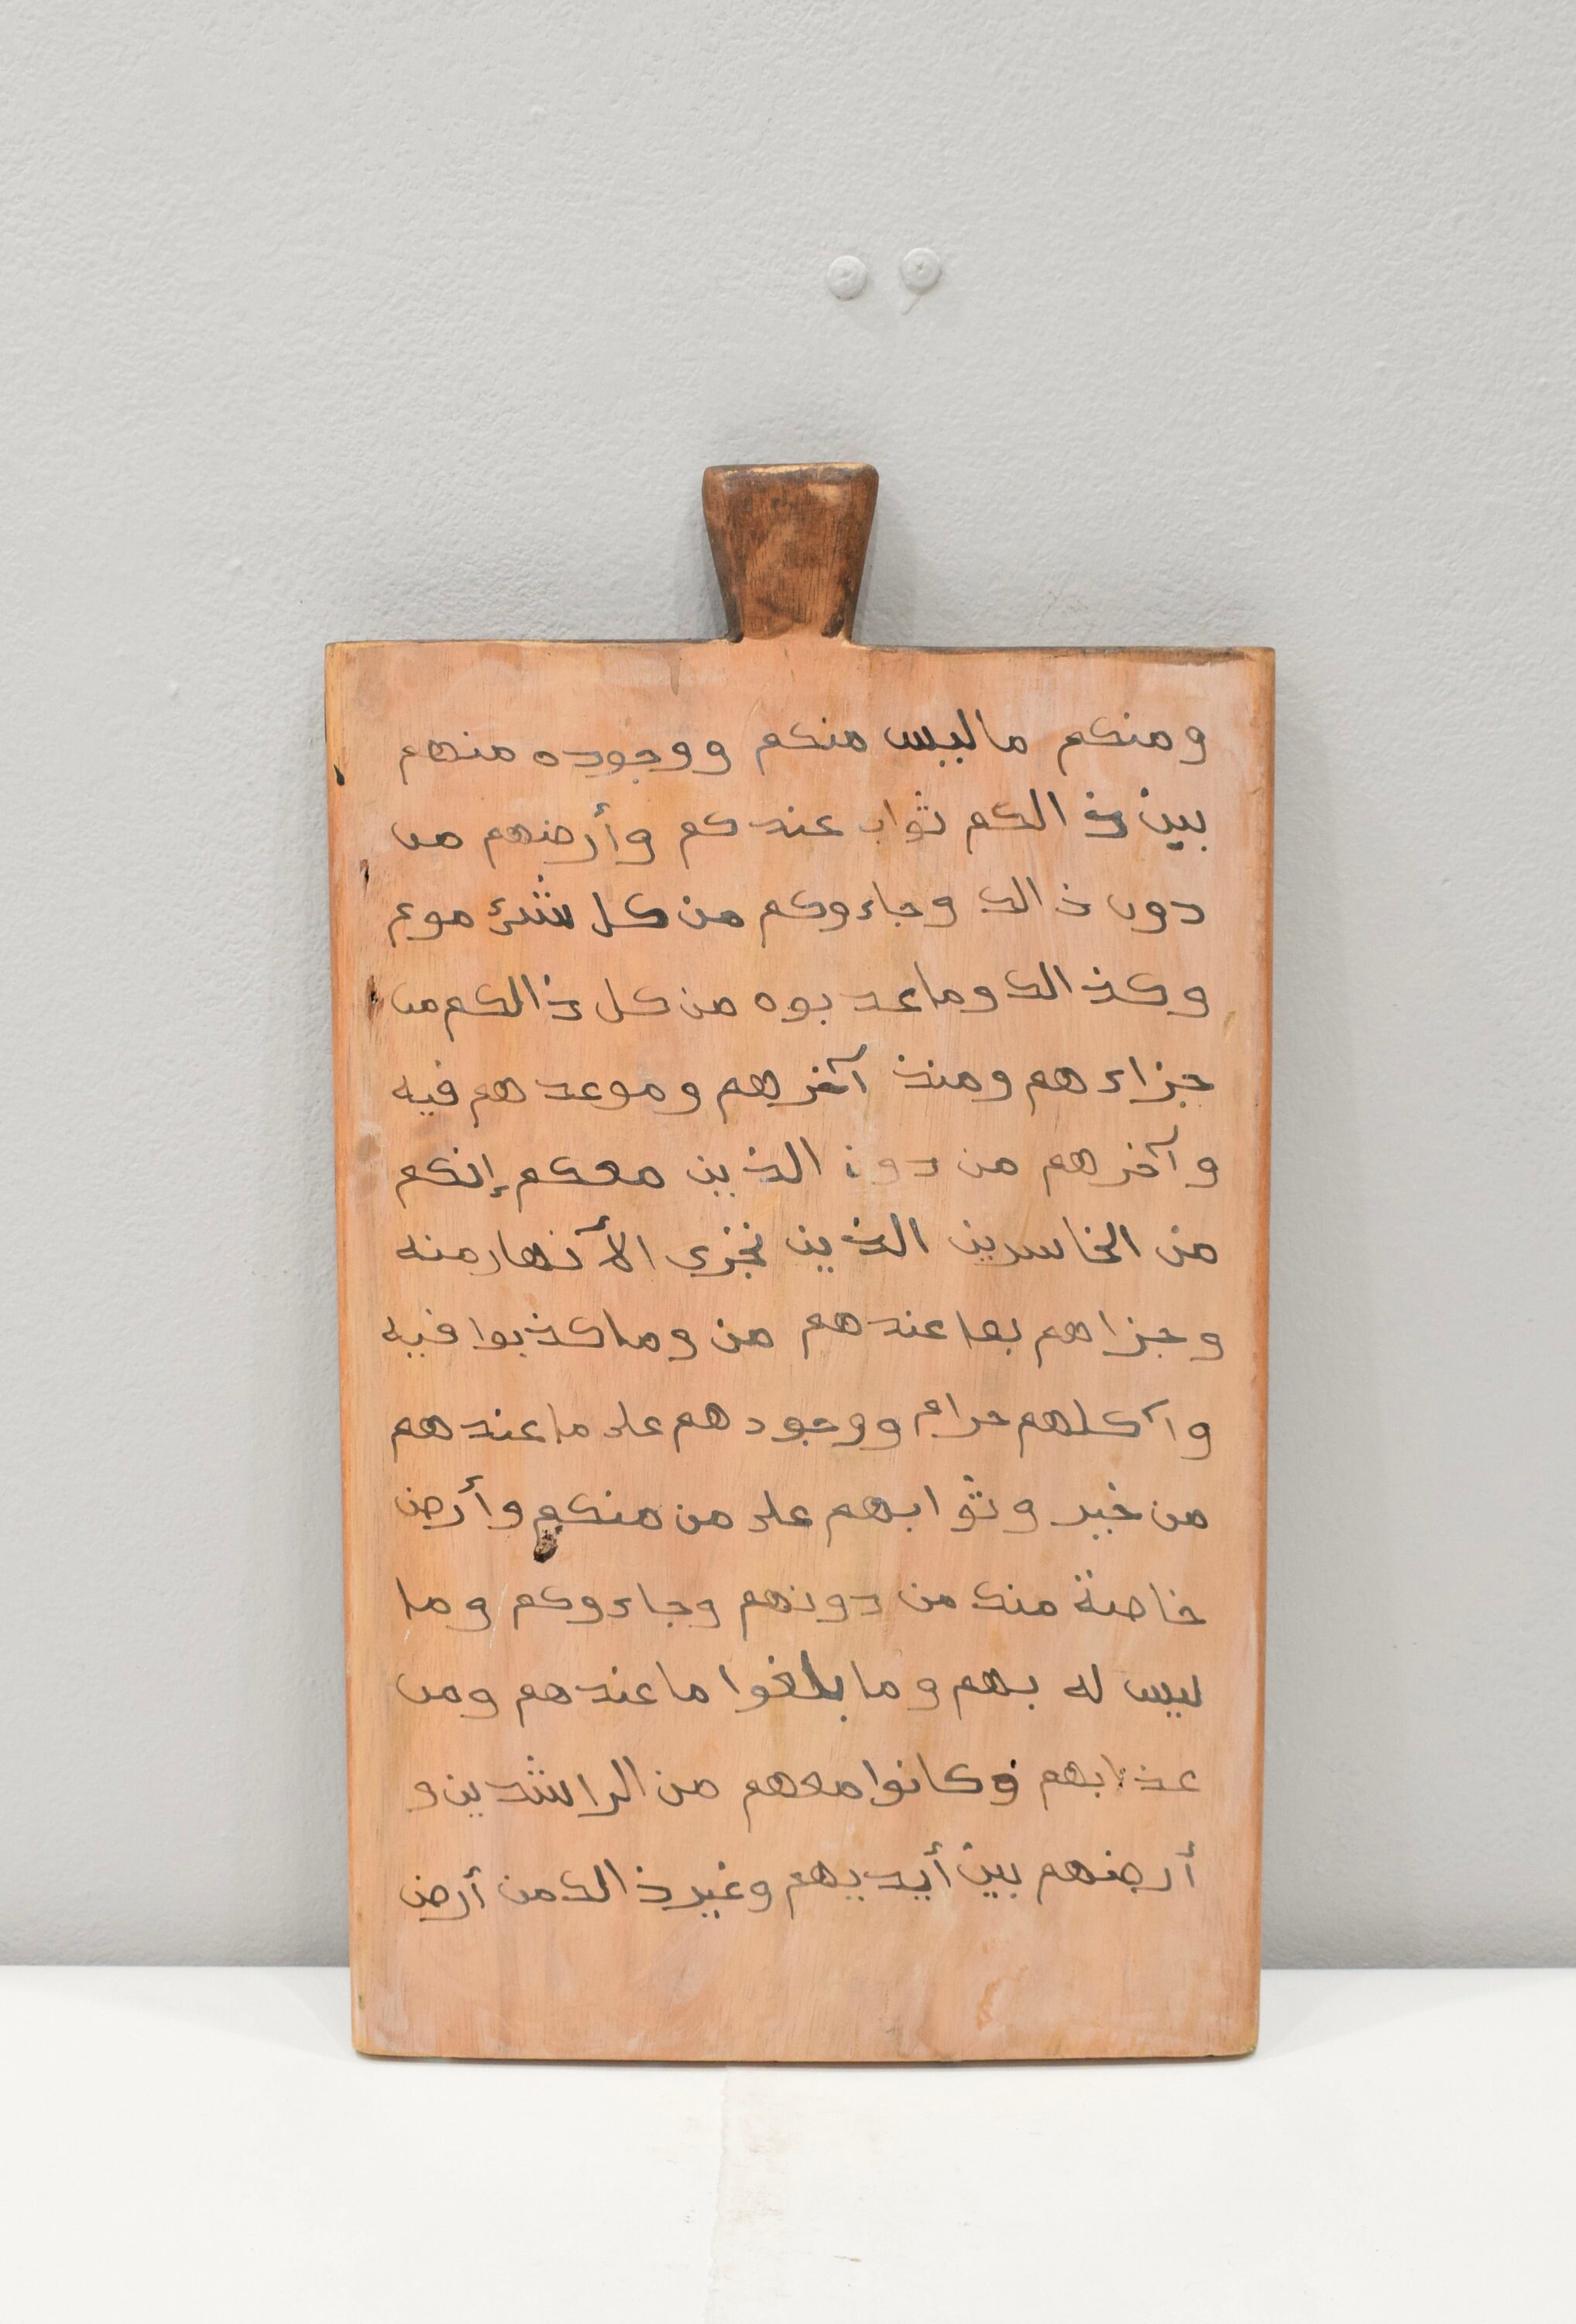 ومنكم ماليس منكم ووجوده منهم
بين ذالكم ثواب عندكم وأرضهم من
دون ذالك وجاءوكم من كل شئ موع
وكذالك وماعدبوه من كل ذالكم من
جزاءهم ومنذ آخرهم وموعدهم فيه
وآخرهم من دون الذين معكم إنكم
من الخاسرين الذين نجزى الأنهار منه
وجزاهم بما عندهم من وماكذبوا فيه
وآكلهم حرام ووجودهم على ماعندهم
من خير وثوابهم على من منكم وأرض
خاصة منك من دونهم وجاءوكم وما
ليس له بهم وما بلغوا ماعندهم ومن
عذابهم فكانوا معهم من الراشدين و
أرضهم بين أيديهم وغيرذالك من أرض